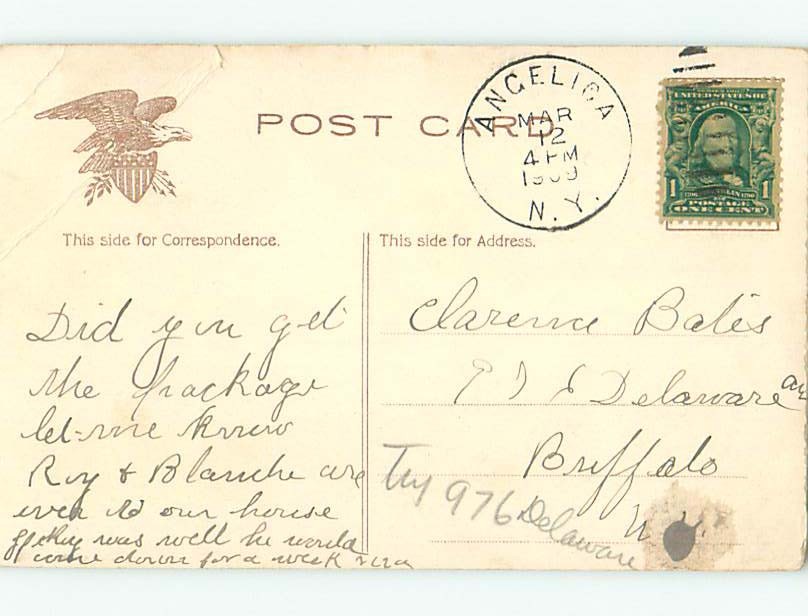 POST CARD
ANGELICA
MAR
12
4 PM
1909
N. Y.
UNITED STATES OF
AMERICA
1 1
FRANKLIN
POSTAGE
ONE CENT
This side for Correspondence.
Did you get
the package
let me know
Roy & Blanche are
over to our house
was well he would
come down for a week
This side for Address.
Clarence Bates
Delaware ave
Buffalo
N.Y.
Try 976 Delaware